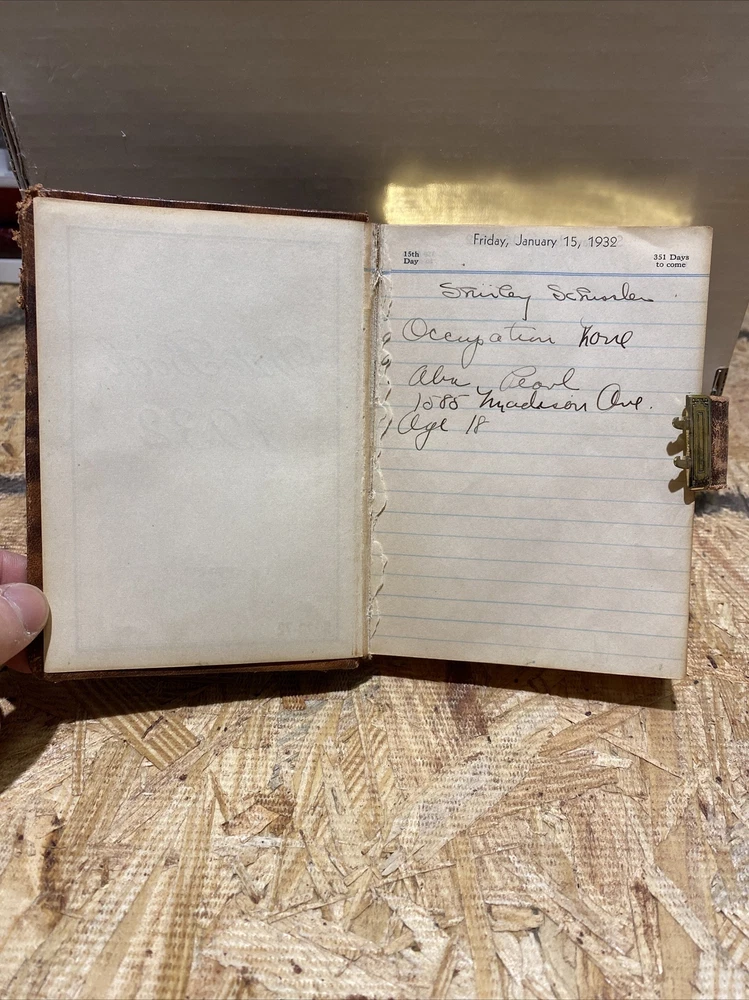 Friday, January 15, 1932
15th
Day
351 Days
to come
Shirley Schissler
Occupation None
Pearl
1585 Madison Ave.
Age 18